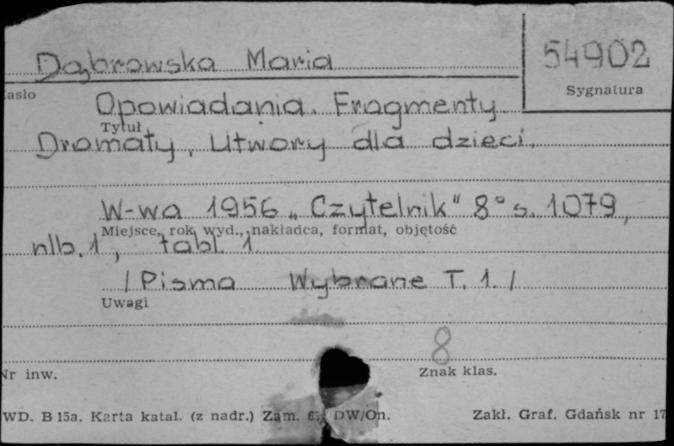 Dąbrowska Maria
54902
asło
Sygnatura
Opowiadania. Fragmenty.
Tytuł
Dramaty, Utwory dla dzieci.
W-wa 1956 „Czytelnik" 8° s. 1079,
Miejsce, rok wyd., nakładca, format, objętość
nlb. 1, tabl. 1
/Pisma Wybrane T. 1./
Uwagi
8
Nr inw.
Znak klas.
WD. B 15a. Karta katal. (z nadr.) Zam. DW/On.
Zakł. Graf. Gdańsk nr 17